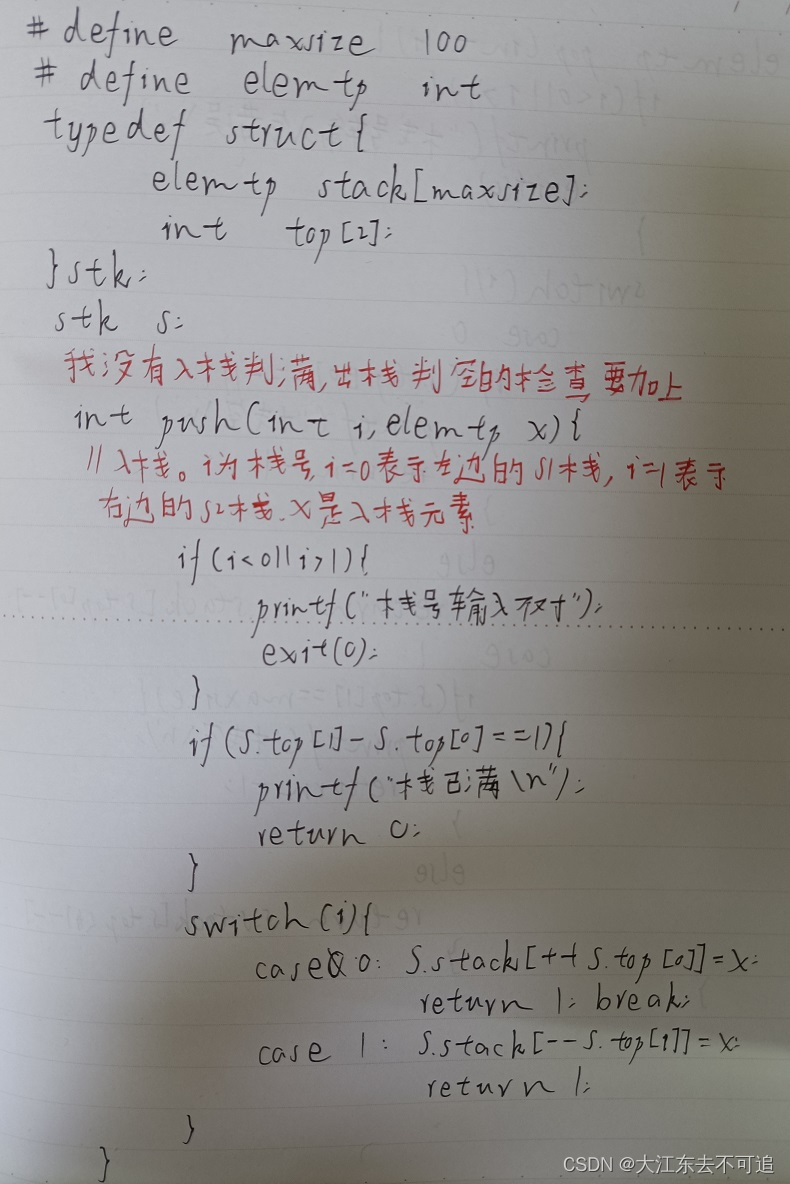 # define maxsize 100
# define elemtp int
typedef struct{
elemtp stack[maxsize];
int top[2];
}stk;
stk s;
我没有入栈判满,出栈判空的检查,要加上
int push(int i,elemtp x){
//入栈。i为栈号,i=0表示左边的s1栈,i=1表示
右边的s2栈.x是入栈元素
if(i<0||i>1){
printf("栈号输入不对");
exit(0);
}
if(s.top[1]-s.top[0]==1){
printf("栈已满\n");
return 0;
}
switch(i){
case 0: s.stack[++s.top[0]]=x;
return 1; break;
case 1: s.stack[--s.top[1]]=x;
return 1;
}
}
CSDN @大江东去不可追